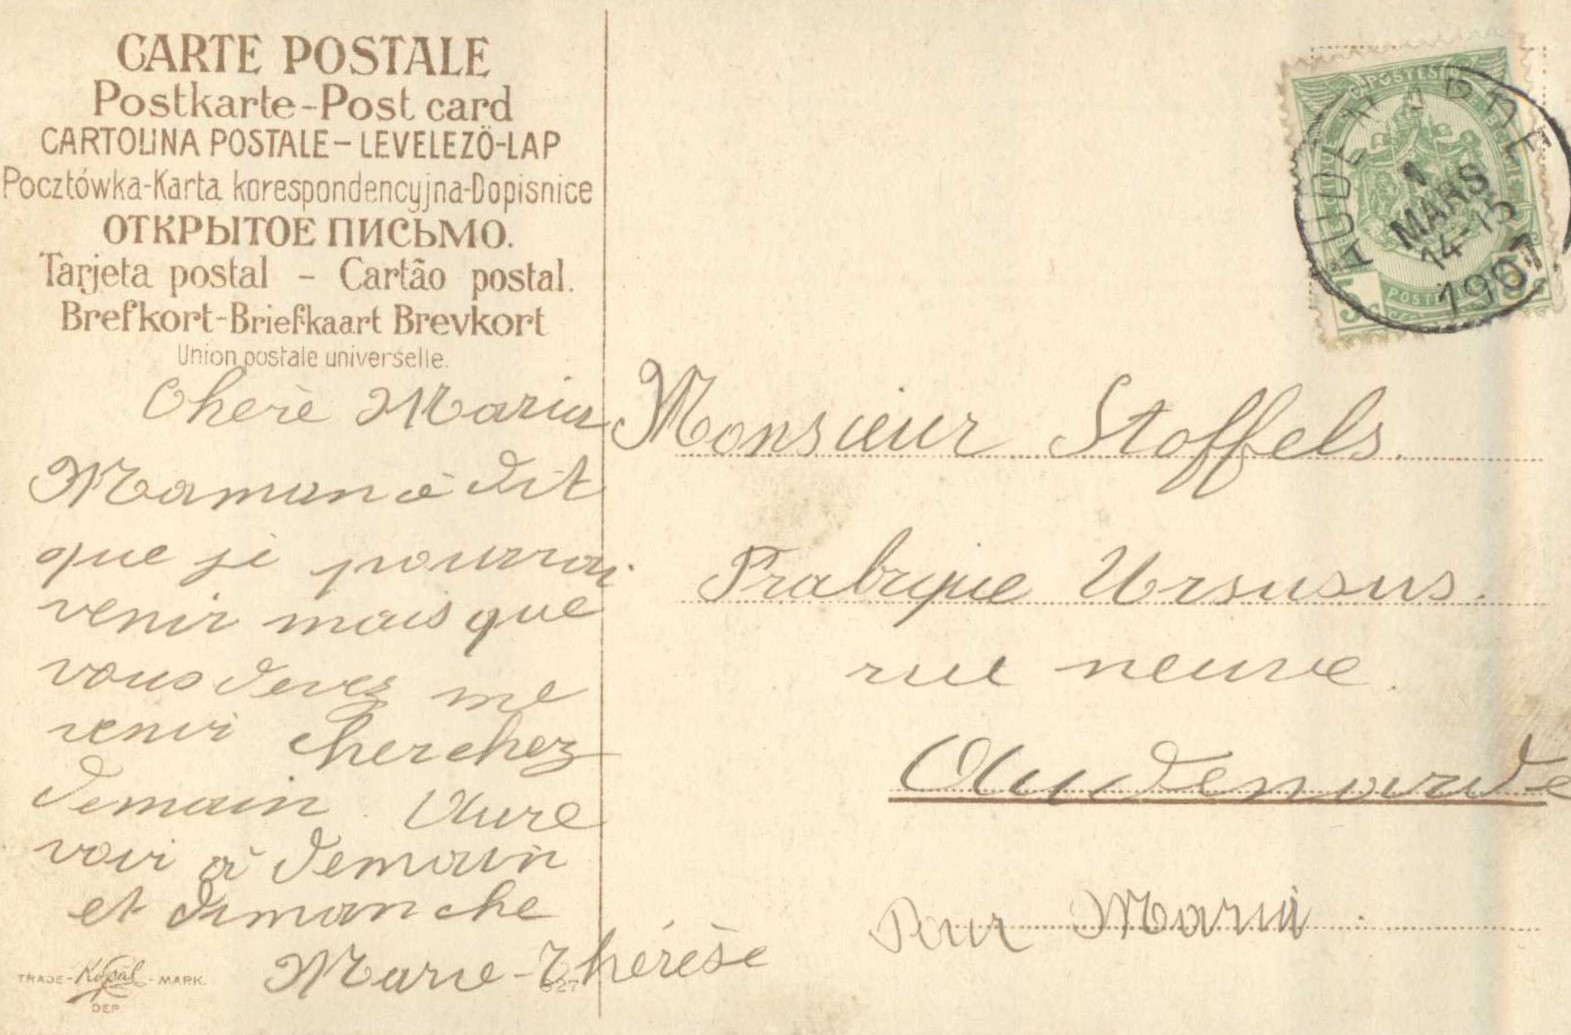 CARTE POSTALE
Postkarte-Post card
CARTOLINA POSTALE-LEVELEZÖ-LAP
Pocztówka-Karta korespondencyjna-Dopisnice
ОТКРЫТОЕ ПИСЬМО.
Tarjeta postal - Cartão postal.
Brefkort-Briefkaart Brevkort
Union postale universelle.
Cherè Maria
Maman à dit
que je pourrai
venir mais que
vous devez me
venir cherchez
demain. Aure
voir à demain
et dimanche
Marie-Thérèse
TRADE-Kopal-MARK.
DEP.
327
POSTES
AUDENARDE
1
MARS
14-15
1907
5c
5c
Monsieur Stoffels.
Frabrique Ursusus.
rue neuve.
Audenarde
Pour Maria.